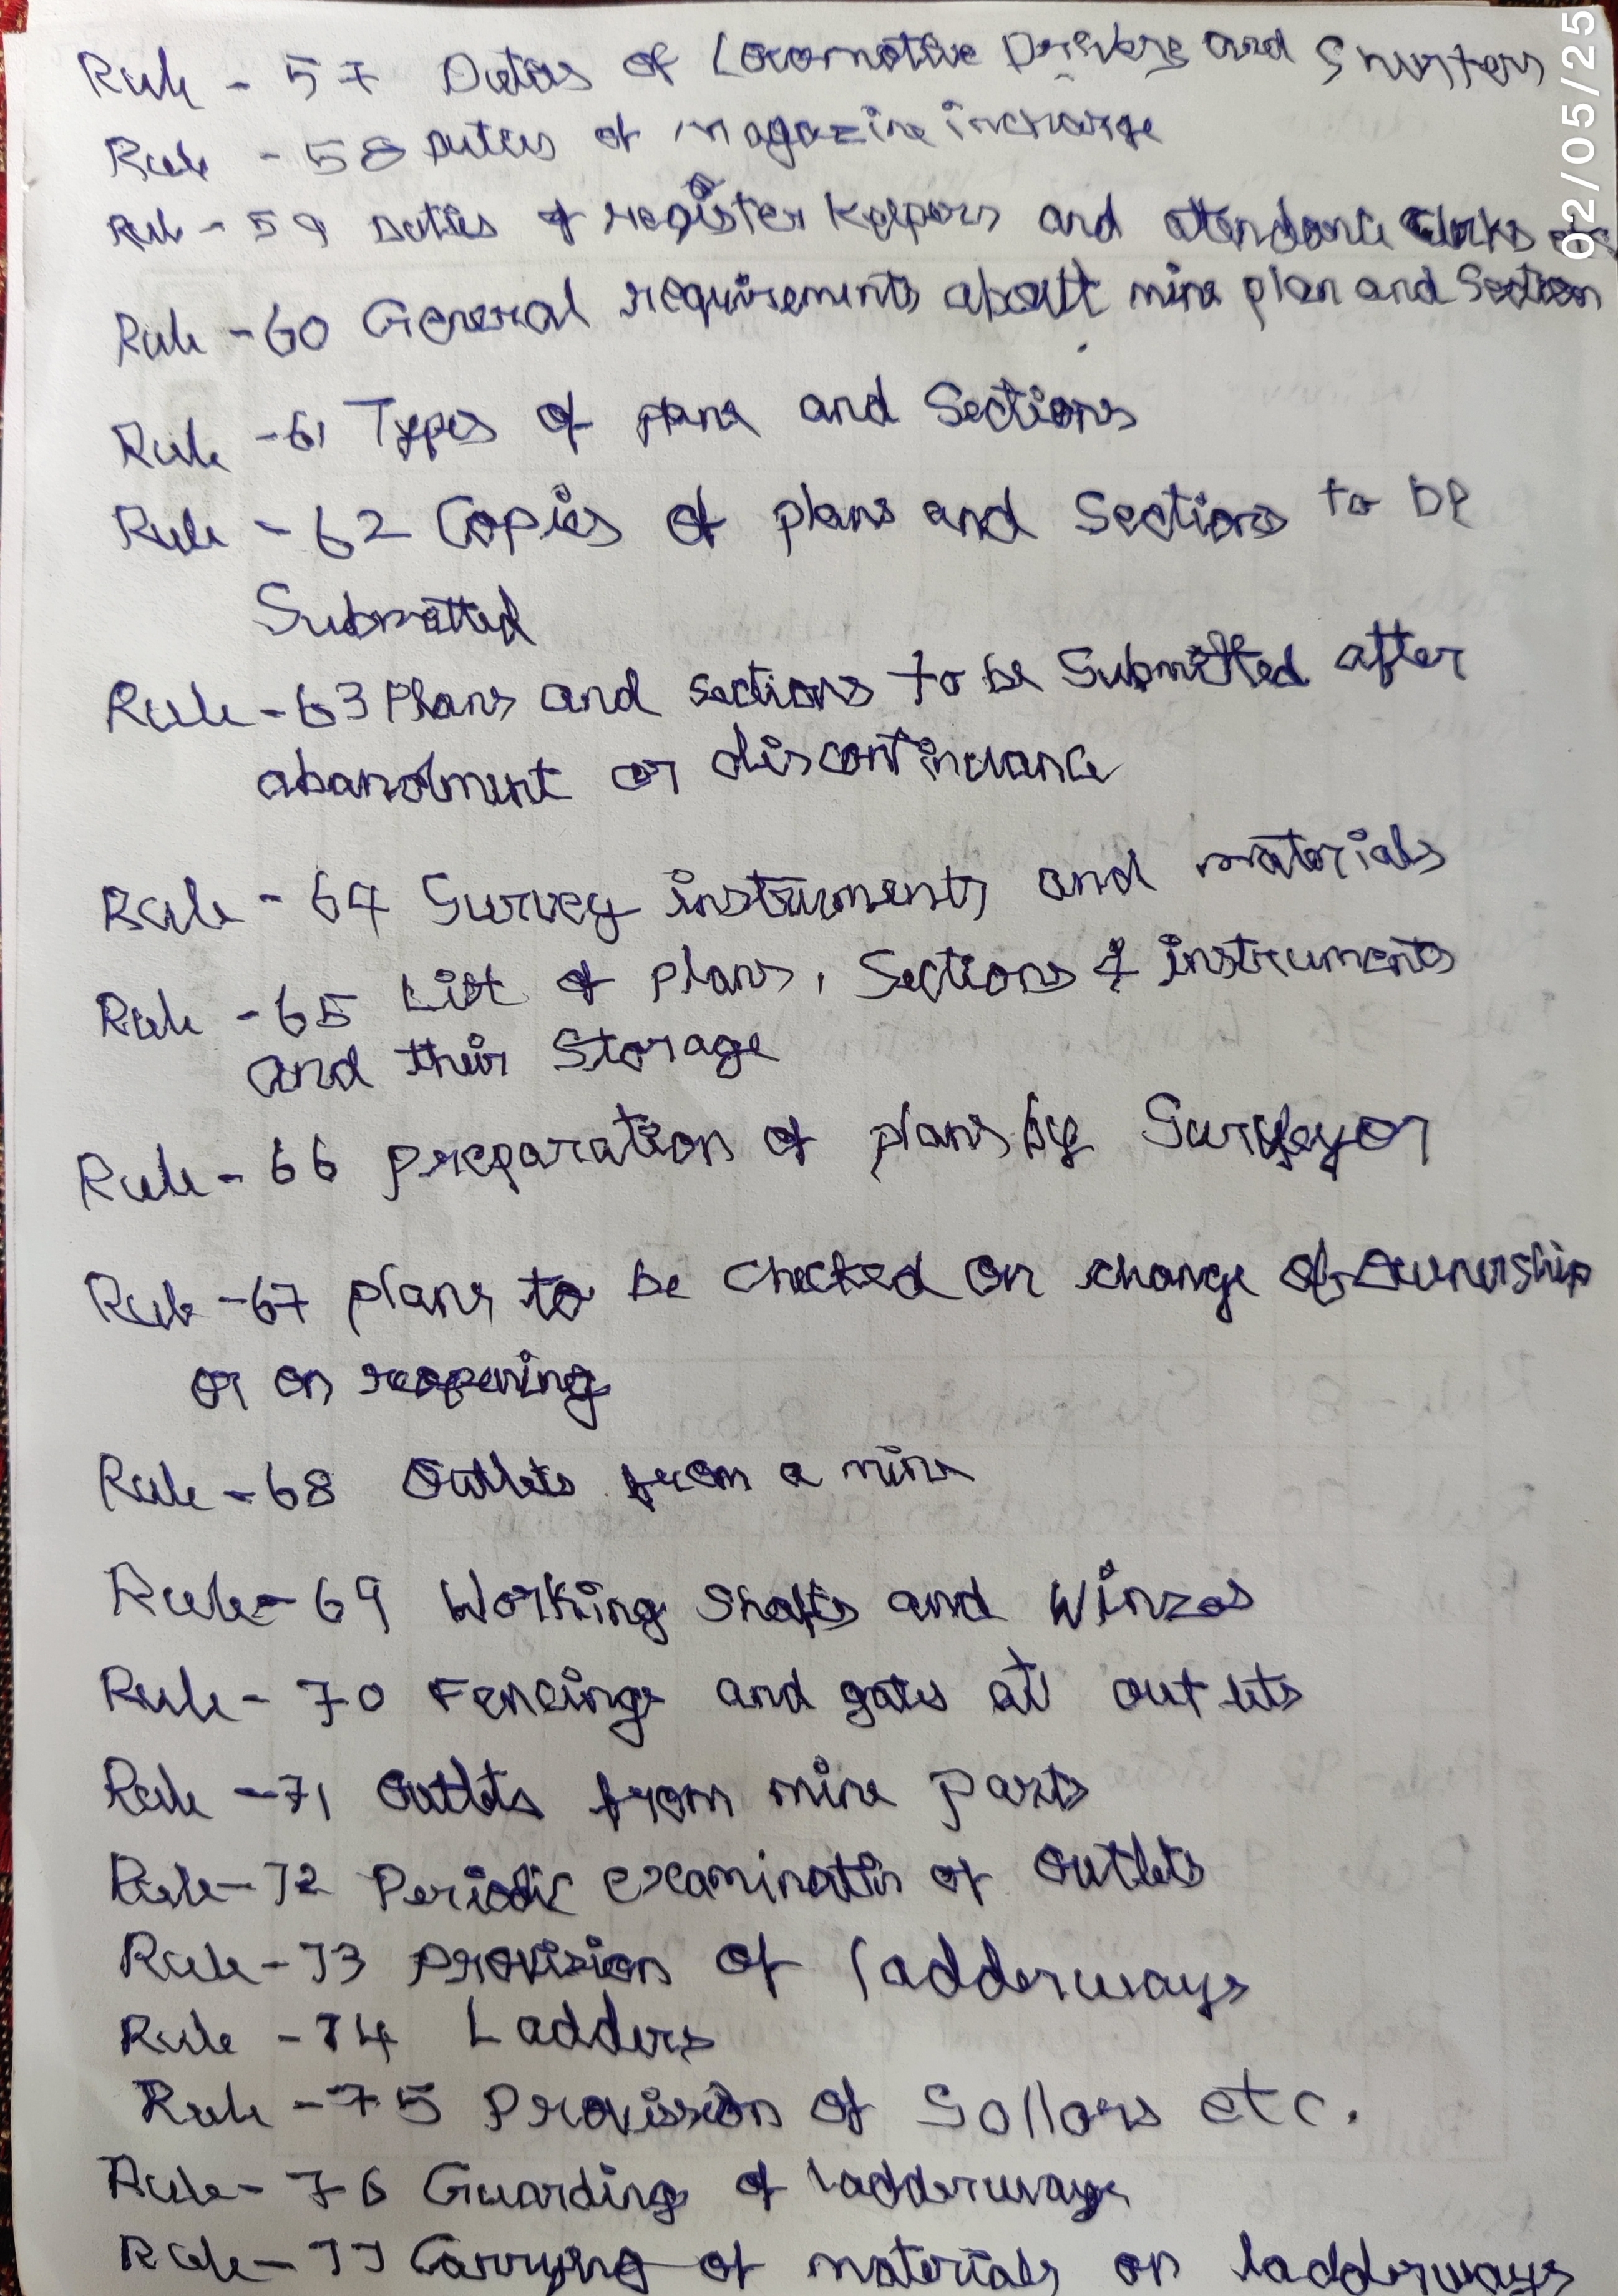 Rule - 57 Duties of Locomotive Drivers and Shunters
Rule - 58 Duties of magazine incharge
Rule - 59 Duties of register Keepers and attendance Clerks
Rule - 60 General requirements about mine plan and Section
Rule - 61 Types of plans and Sections
Rule - 62 Copies of plans and Sections to be
Submitted
Rule - 63 Plans and sections to be Submitted after
abandment or discontinuance
Rule - 64 Survey instruments and materials
Rule - 65 List of plans, Sections & instruments
and their Storage
Rule - 66 preparation of plans by Surveyor
Rule - 67 plans to be checked on change of ownership
or on reopening
Rule - 68 Outlets from a mine
Rule - 69 Working Shafts and Winzes
Rule - 70 Fencings and gates at out lets
Rule - 71 Outlets from mine parts
Rule - 72 Periodic examination of outlets
Rule - 73 Provision of ladderways
Rule - 74 Ladders
Rule - 75 Provission of Sollars etc.
Rule - 76 Guarding of ladderways
Rule - 77 Carrying of materials on ladderways
02/05/25